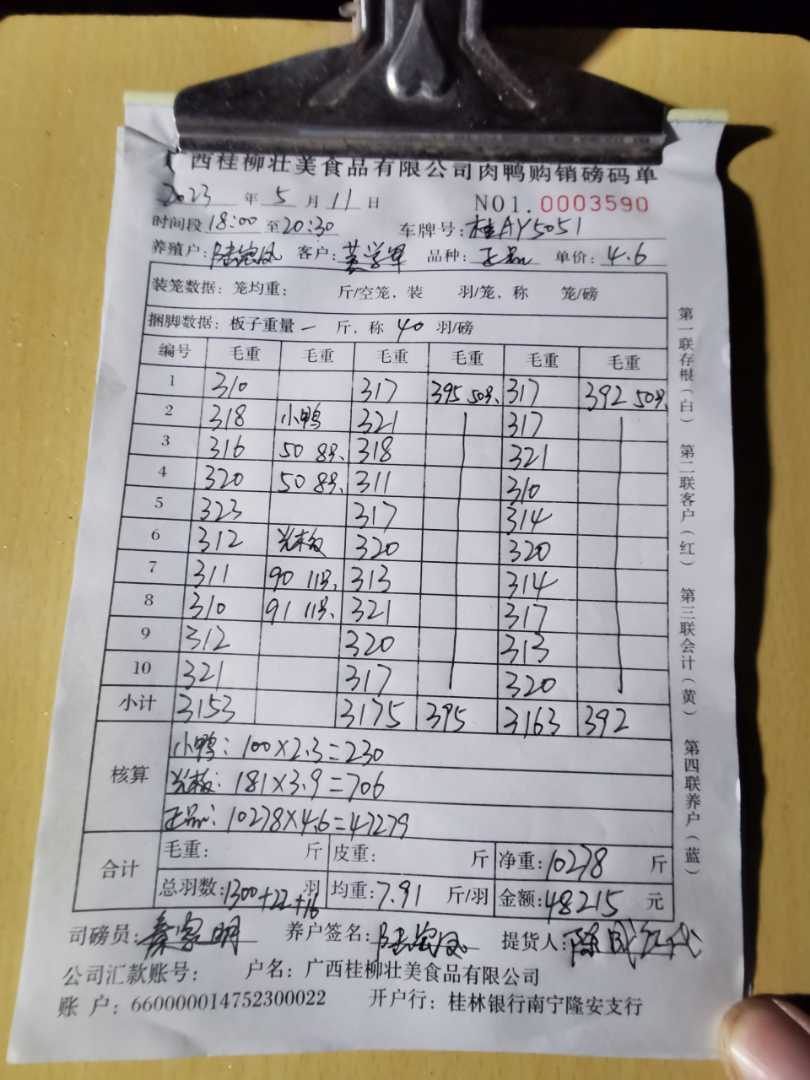 广西桂柳壮美食品有限公司肉鸭购销磅码单
2023 年 5 月 11 日 NO1.0003590
时间段 18:00 至 20:30 车牌号: 桂AY5051
养殖户: 客户: 黄学军 品种: 正品 单价: 4.6
装笼数据: 笼均重: 斤/空笼, 装 羽/笼, 称 笼/磅
捆脚数据: 板子重量 一 斤, 称 40 羽/磅
编号 毛重 毛重 毛重 毛重 毛重 毛重
1 310 317 395 50只 317 392 50只
2 318 小鸭 321 317
3 316 50 8只 318 321
4 320 50 8只 311 310
5 323 317 314
6 312 光板 320 320
7 311 90 11只 313 314
8 310 91 11只 321 317
9 312 320 313
10 321 317 320
小计 3153 3175 395 3163 392
核算
小鸭: 100×2.3=230
光板: 181×3.9=706
正品: 10278×4.6=47279
合计
毛重: 斤 皮重: 斤 净重: 10278 斤
总羽数: 1300+22+16 羽 均重: 7.91 斤/羽 金额: 48215 元
司磅员: 秦家明 养户签名: 提货人:
公司汇款账号: 户名: 广西桂柳壮美食品有限公司
账 户: 660000014752300022 开户行: 桂林银行南宁隆安支行
第一联存根(白) 第二联客户(红) 第三联会计(黄) 第四联养户(蓝)